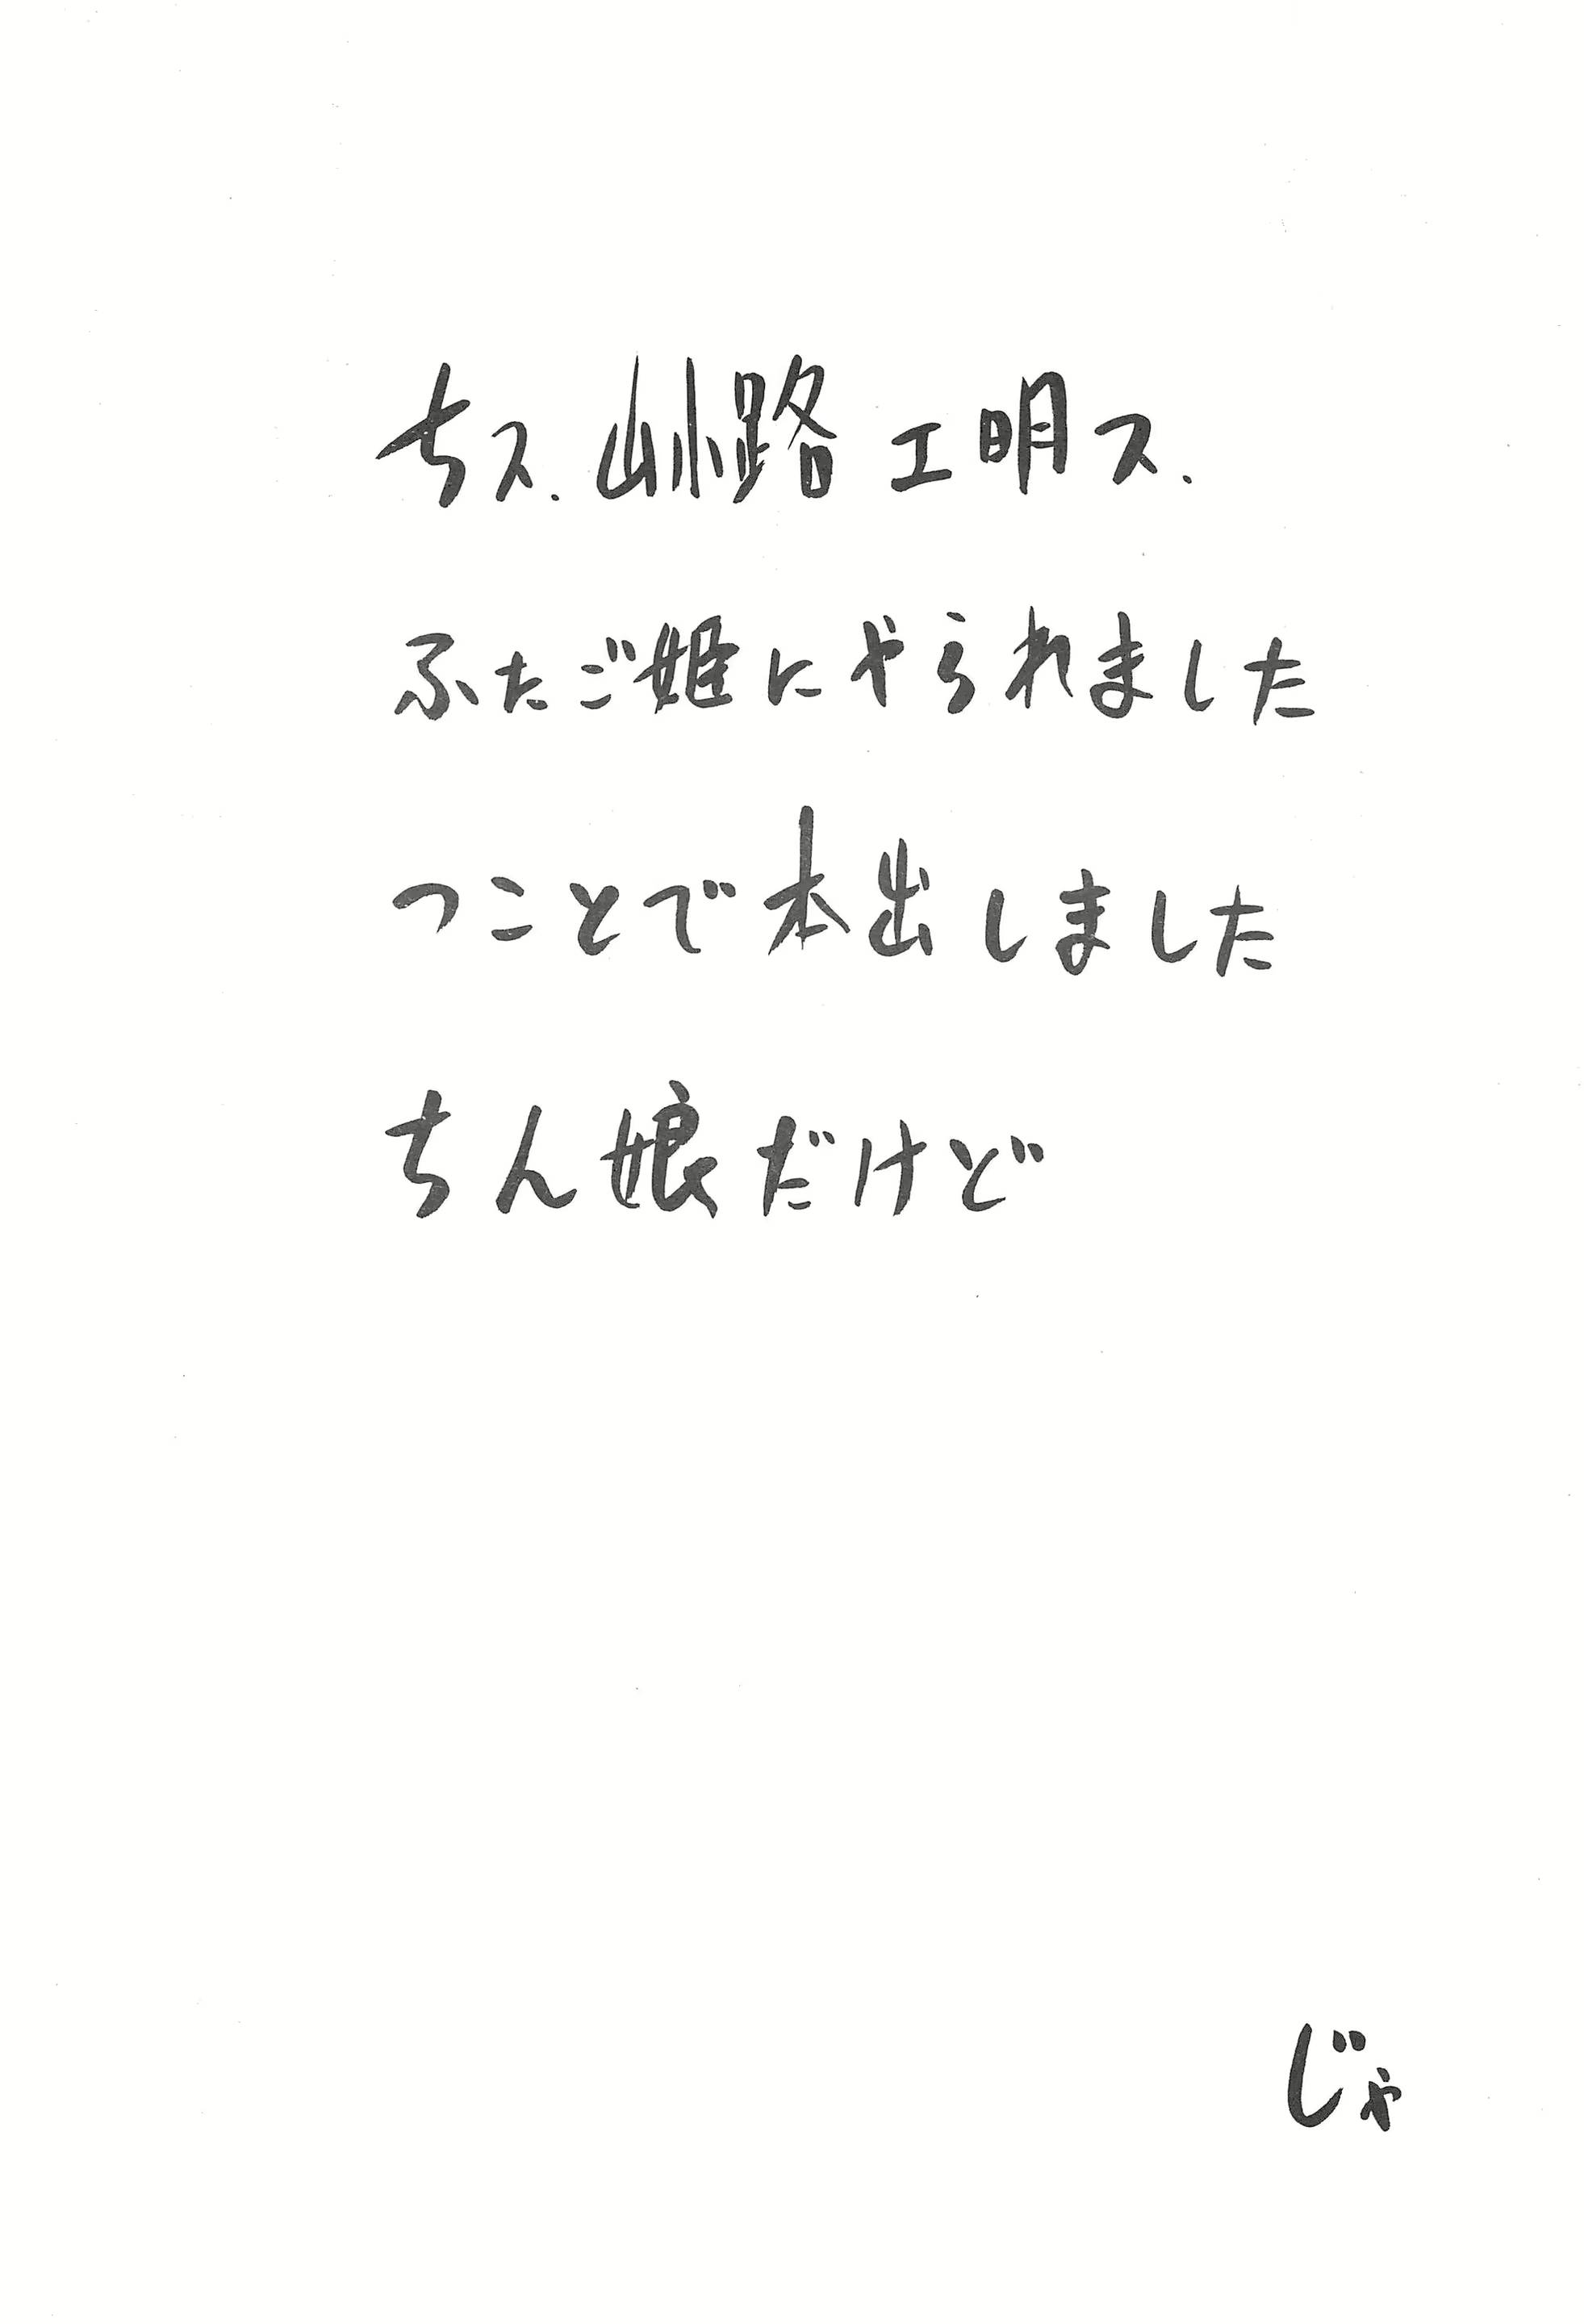 ちス.山小路 エ明ス.
ふたご姫にやられました
つことで本出しました
ちん娘だけど
じゃ